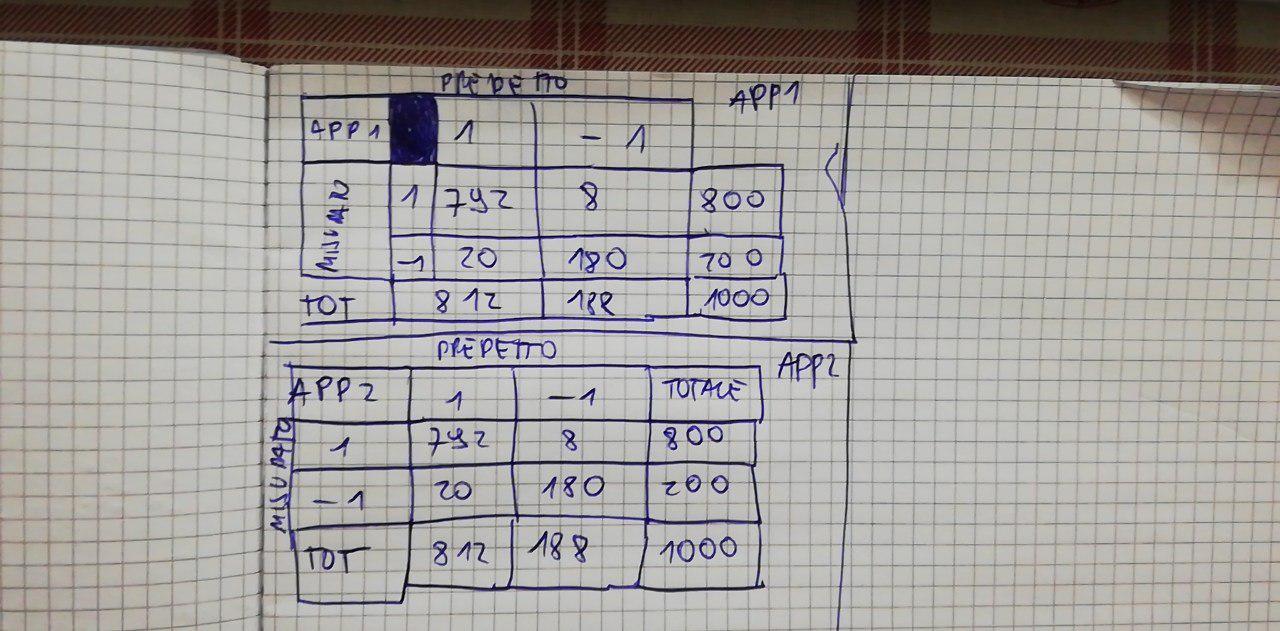 PREDETTO
APP1
APP1 1 -1
MISURATO 1 792 8 800
-1 20 180 200
TOT 812 188 1000
PREDETTO
APP2
APP2 1 -1 TOTALE
MISURATO 1 792 8 800
-1 20 180 200
TOT 812 188 1000